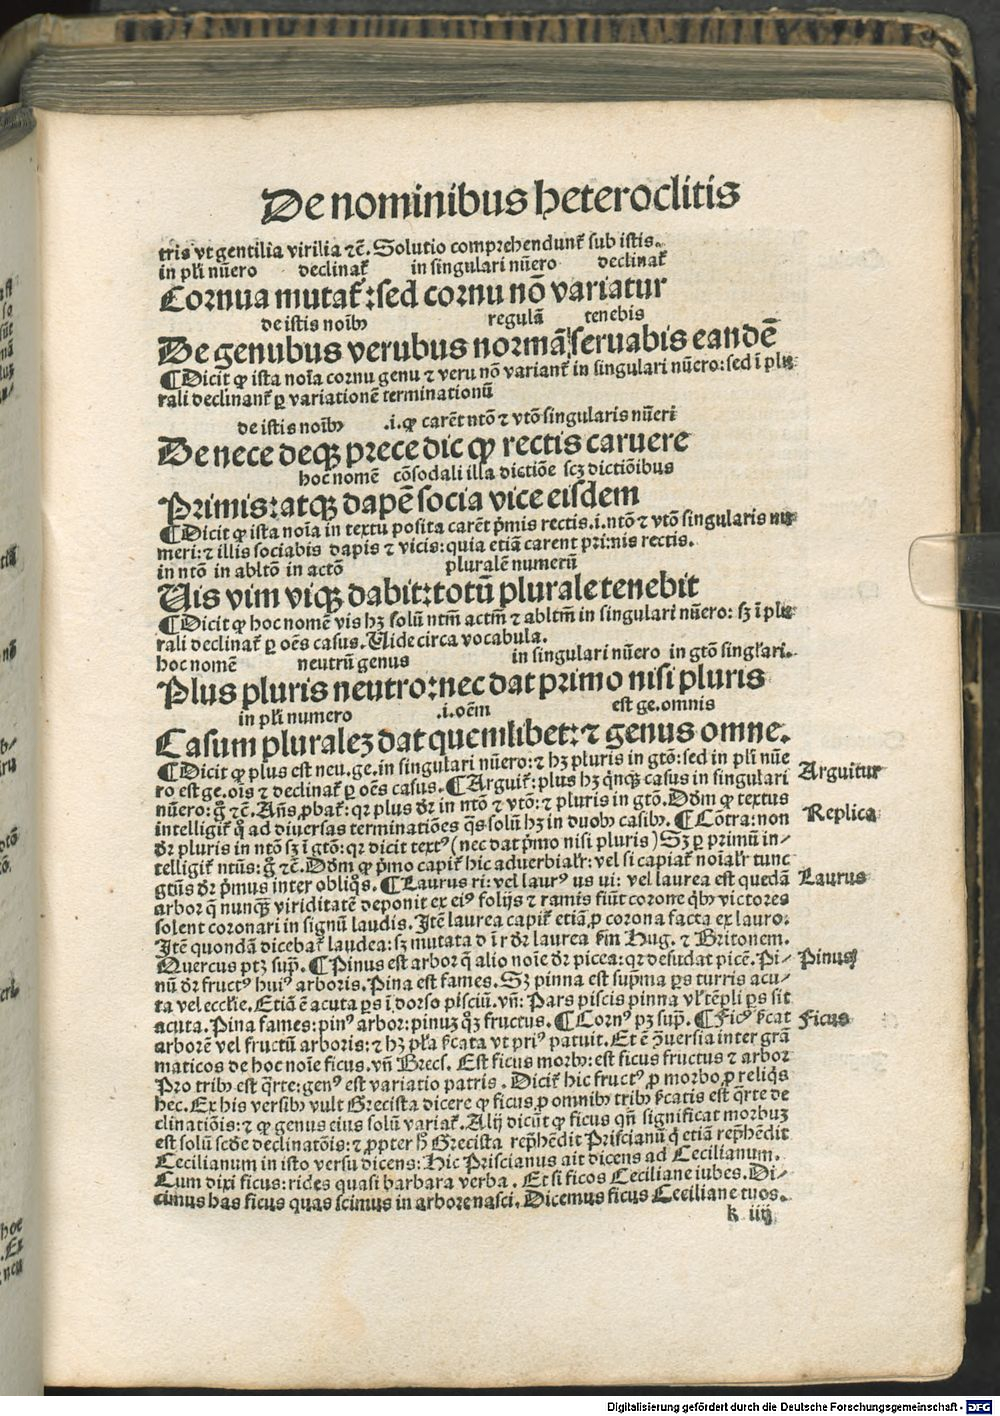 De nominibus heteroclitis
tris vt gentilia virilia ⁊c̃. Solutio comprehendunt᷑ sub istis.
in pl̃i nũero declinat᷑ in singulari nũero declinat᷑
Cornua mutat᷑: sed cornu nõ variatur
de istis noĩbꝫ regulã tenebis
De genubus verubus normã seruabis eandẽ
¶ Dicit ꝙ ista noĩa cornu genu ⁊ veru nõ variant᷑ in singulari nũero: sed ĩ plu-
rali declinant᷑ ꝑ variationẽ terminationũ
de istis noĩbꝫ .i. ꝙ carẽt ntõ ⁊ vtõ singularis nũeri
De nece deqꝫ prece dic ꝙ rectis caruere
hoc nomẽ cõsodali illa dictiõe scꝫ dictiõibus
Primis: atqꝫ dapẽ socia vice eisdem
¶ Dicit ꝙ ista noĩa in textu posita carẽt p̃mis rectis .i. ntõ ⁊ vtõ singularis nu-
meri: ⁊ illis sociabis dapis ⁊ vicis: quia etiã carent primis rectis.
in ntõ in abltõ in actõ pluralẽ numerũ
Uis vim viqꝫ dabit: totũ plurale tenebit
¶ Dicit ꝙ hoc nomẽ vis hꝫ solũ ntm̃ actm̃ ⁊ abltm̃ in singulari nũero: sꝫ ĩ plu-
rali declinat᷑ ꝑ oẽs casus. Uide circa vocabula.
hoc nomẽ neutrũ genus in singulari nũero in gtõ singl̃ari.
Plus pluris neutro: nec dat primo nisi pluris
in pl̃i numero .i. oẽm est ge. omnis
Casum pluraleꝫ dat quemlibet: ⁊ genus omne.
¶ Dicit ꝙ plus est neu. ge. in singulari nũero: ⁊ hꝫ pluris in gtõ: sed in pl̃i nũe
ro est ge. oĩs ⁊ declinat᷑ ꝑ oẽs casus. ¶ Arguit᷑: plus hꝫ q̃nqꝫ casus in singulari
Arguitur
nũero: g̊ ⁊c̃. Añs ꝓbat᷑: qꝛ plus dr̃ in ntõ ⁊ vtõ: ⁊ pluris in gtõ. Dõm ꝙ textus
intelligit᷑ q̊ ad diuersas terminatiões q̃s solũ hꝫ in duobꝫ casibꝫ. ¶ Cõtra: non
Replica
dr̃ pluris in ntõ sꝫ ĩ gtõ: qꝛ dicit textꝰ (nec dat p̃mo nisi pluris) Sꝫ ꝑ primũ in-
telligit᷑ ntũs: g̊ ⁊c̃. Dõm ꝙ p̃mo capit᷑ hic aduerbialr̃: vel si capiat᷑ noĩalr̃ tunc
gtũs dr̃ p̃mus inter obliq̃s. ¶ Laurus ri: vel laurꝰ us ui: vel laurea est quedã
Laurus
arbor q̃ nunqꝫ̃ viriditatẽ deponit ex eiꝰ folijs ⁊ ramis fiũt corone q̃bꝫ victores
solent coronari in signũ laudis. Itẽ laurea capit᷑ etiã ꝓ corona facta ex lauro.
Itẽ quondã dicebat᷑ laudea: sꝫ mutata d ĩ r dr̃ laurea ẜm Hug. ⁊ Britonem.
Quercus ptꝫ sup̃. ¶ Pinus est arbor q̃ alio noĩe dr̃ picea: qꝛ desudat picẽ. Pi-
Pinus
nũ dr̃ fructꝰ huiꝰ arboris. Pina est fames. Sꝫ pinna est sup̃ma ꝑs turris acu-
ta vel ecclie. Etiã ẽ acuta ꝑs ĩ dorso pisciũ. vñ: Pars piscis pinna vl̃ tẽpli ꝑs sit
acuta. Pina fames: pinꝰ arbor: pinuꝫ q̊ꝫ fructus. ¶ Cornꝰ pꝫ sup̃. ¶ Ficꝰ ẜcat
Ficus
arborẽ vel fructũ arboris: ⁊ hꝫ pl̃a ẜcata vt priꝰ patuit. Et ẽ ꝯ̃uersia inter grã
maticos de hoc noĩe ficus. vñ Brecs. Est ficus morbꝰ: est ficus fructus ⁊ arbor
Pro tribꝫ est q̃rte: genꝰ est variatio patris. Dicit᷑ hic fructꝰ ꝓ morbo ꝓ reliq̃s
hec. Ex his versibꝫ vult Grecista dicere ꝙ ficus ꝓ omnibꝫ tribꝫ ẜcatis est q̃rte de
clinatiõis: ⁊ ꝙ genus eius solũ variat᷑. Alij dicũt ꝙ ficus qñ significat morbuꝫ
est solũ scd̃e declinatõis: ⁊ ꝓpter h̊ Grecista rep̃hẽdit Priscianũ q̊ etiã rep̃hẽdit
Cecilianum in isto versu dicens: Hic Priscianus ait dicens ad Cecilianum.
Cum dixi ficus: rides quasi barbara verba. Et si ficos Ceciliane iubes. Di-
cimus has ficus quas scimus in arbore nasci. Dicemus ficus Ceciliane tuos.
k iiij
Digitalisierung gefördert durch die Deutsche Forschungsgemeinschaft - DFG